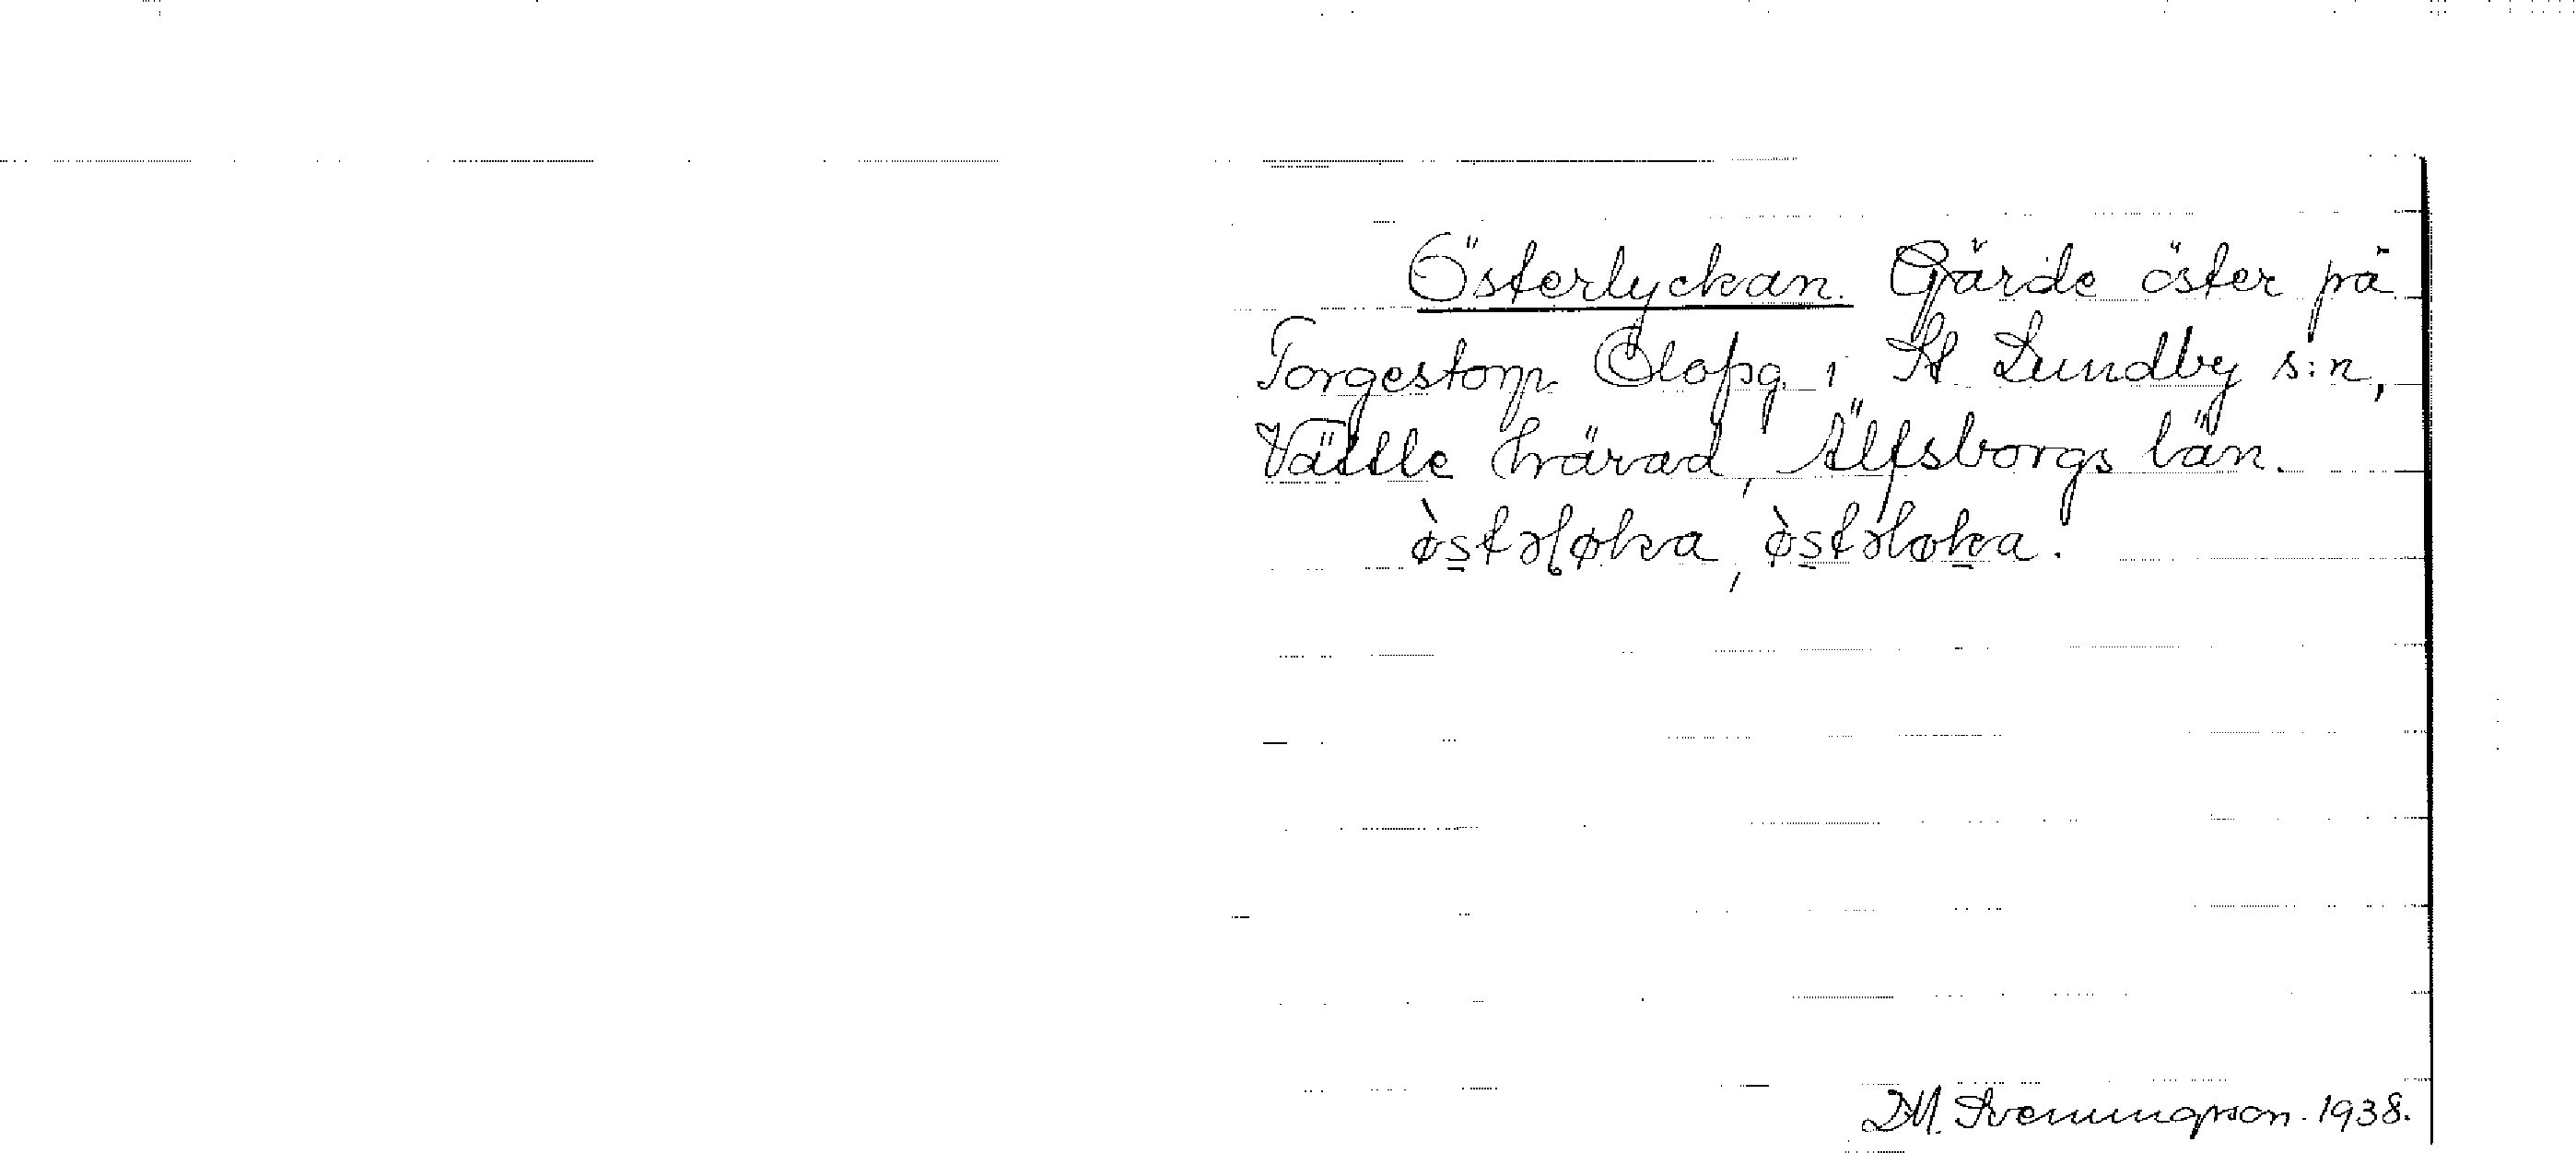 Österlyckan. Gärde öster på
Torgestorp Olofsg. i St Lundby s:n,
Vättle härad, Älfsborgs län.
ò̀stəɭøka, òstəløka.
DM. Svenningson. 1938.